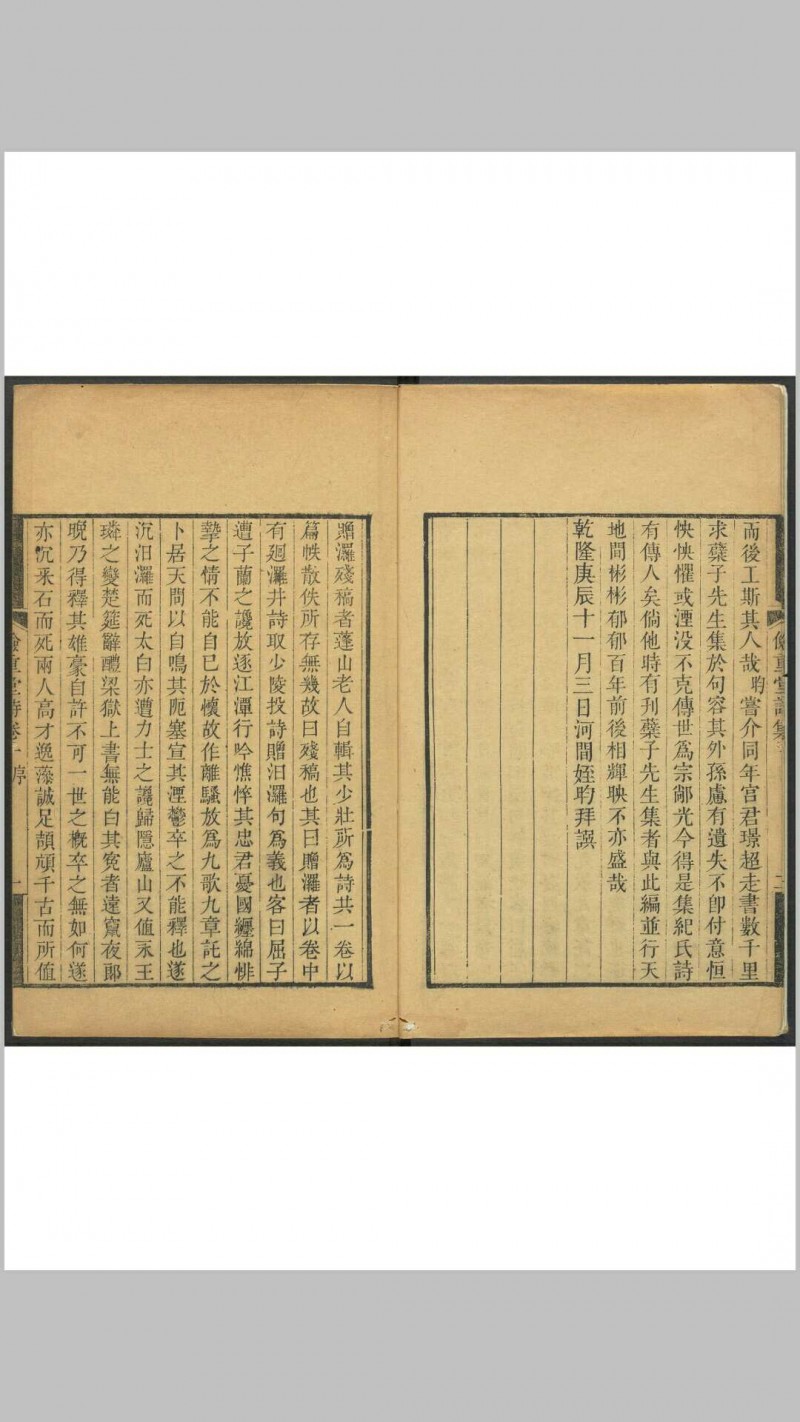 而後工斯其人哉昀嘗介同年宫君璟超走書數千里
求蘗子先生集於句容其外孫慮有遺失不卽付意恒
怏怏懼或湮没不克傳世爲宗鄃光今得是集紀氏詩
有傳人矣倘他時有刊蘗子先生集者與此編並行天
地間彬彬郁郁百年前後相輝映不亦盛哉
乾隆庚辰十一月三日河間姪昀拜譔
儉重堂詩集
二
贈灑殘稿者蓬山老人自輯其少壯所爲詩共一卷以
篇帙散佚所存無幾故曰殘稿也其曰贈灑者以卷中
有迴灑井詩取少陵投詩贈汨灑句爲義也客曰屈子
遭子蘭之讒放逐江潭行吟憔悴其忠君憂國纒綿悱
摯之情不能自已於懷故作離騷放爲九歌九章託之
卜居天問以自鳴其阨塞宣其湮鬱卒之不能釋也遂
沉汨灑而死太白亦遭力士之讒歸隱廬山又值永王
璘之變楚筵辭醴梁獄上書無能白其寃者遠竄夜郞
晚乃得釋其雄豪自許不可一世之槪卒之無如何遂
亦沉采石而死兩人高才逸藻誠足頡頏千古而所值
儉重堂詩卷一序
一